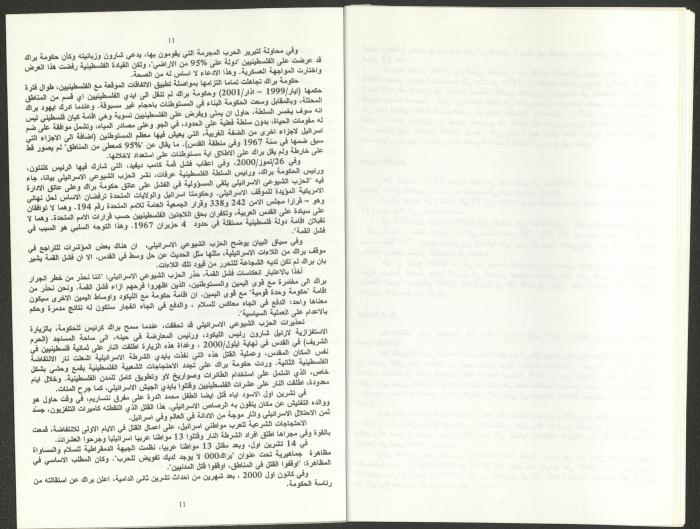 11
وفي محاولة لتبرير الحرب المجرمة التي يقومون بها، يدعي شارون وزبانيته وكأن حكومة براك
قد عرضت على الفلسطينيين "دولة على 95% من الاراضي"، ولكن القيادة الفلسطينية رفضت هذا العرض
واختارت المواجهة العسكرية. وهذا الادعاء لا اساس له من الصحة.
حكومة براك تجاهلت تماما التزامها بمواصلة تطبيق الاتفاقات الموقعة مع الفلسطينيين، طوال فترة
حكمها (ايار/1999 – اذار/2001) وحكومة براك لم تنقل الى ايدي الفلسطينيين اي قسم من المناطق
المحتلة، وبالمقابل وسعت حكومة البناء في المستوطنات باحجام غير مسبوقة. وعندما ادرك ايهود براك
انه سوف يخسر السلطة، حاول ان يملي ويفرض على الفلسطينيين تسوية وهي اقامة كيان فلسطيني ليس
له مقومات الحياة، بدون سلطة فعلية على الحدود، في الجو وعلى مصادر المياه، وتشمل موافقة على ضم
اسرائيل لاجزاء اخرى من الضفة الغربية، التي يعيش فيها معظم المستوطنين (اضافة الى الاجزاء التي
سبق ضمها في سنة 1967 وفي منطقة القدس). ما يقال عن "95% كمعطى من المناطق" لم يصور قط
على خارطة ولم يقل براك على الاطلاق اية مستوطنات على استعداد لاخلائها.
وفي 26/تموز/2000، وفي اعقاب فشل قمة كامب ديفيد، التي شارك فيها الرئيس كلنتون،
ورئيس الحكومة براك، ورئيس السلطة الفلسطينية عرفات، نشر الحزب الشيوعي الاسرائيلي بيانا، جاء
فيه "الحزب الشيوعي الاسرائيلي يلقي المسؤولية في الفشل على عاتق حكومة براك وعلى عاتق الادارة
الامريكية المؤيدة للموقف الاسرائيلي. وحكومتا اسرائيل والولايات المتحدة ترفضان الاساس لحل نهائي
وهو – قرارا مجلس الامن 242 و338 وقرار الجمعية العامة للامم المتحدة رقم 194. وهما لا توافقان
على سيادة على القدس العربية، وتنكران بحق اللاجئين الفلسطينيين حسب قرارات الامم المتحدة. وهما لا
تقبلان اقامة دولة فلسطينية مستقلة في حدود 4 حزيران 1967. وهذا التوجه السلبي هو السبب في
فشل القمة".
وفي سياق البيان يوضح الحزب الشيوعي الاسرائيلي، ان هناك بعض المؤشرات للتراجع في
موقف براك من اللاءات الاسرائيلية، مثلها مثل الحديث عن حل وسط في القدس. الا ان فشل القمة يشير
بان براك لم تكن لديه الشجاعة للتحرر من قيود تلك اللاءات.
أخذا بالاعتبار انعكاسات فشل القمة، حذر الحزب الشيوعي الاسرائيلي: "اننا نحذر من خطر انجرار
براك الى مغامرة مع قوى اليمين والمستوطنين، الذين اظهروا فرحهم ازاء فشل القمة. ونحن نحذر من
إقامة "حكومة وحدة قومية" مع قوى اليمين. ان اقامة حكومة مع الليكود واوساط اليمين الاخرى سيكون
معناها واحد: الدفع في اتجاه معاكس للسلام ، والدفع في اتجاه انفجار ستكون له نتائج مدمرة وحكم
بالاعدام على العملية السياسية".
تحذيرات الحزب الشيوعي الاسرائيلي قد تحققت، عندما سمح براك كرئيس للحكومة، بالزيارة
الاستفزازية لارئيل شارون رئيس الليكود، ورئيس المعارضة في حينه، الى ساحة المساجد (الحرم
الشريف) في القدس في نهاية ايلول/2000 ، وغداة هذه الزيارة اطلقت النار على ثمانية فلسطينيين في
نفس المكان المقدس، وعملية القتل هذه التي نفذت بايدي الشرطة الاسرائيلية اشعلت نار الانتفاضة
الفلسطينية الثانية. وردت حكومة براك على تجدد الاحتجاجات الشعبية الفلسطينية بقمع وحشي بشكل
خاص، الذي اشتمل على استخدام الطائرات وصواريخ لاو وتطويق كامل للمدن الفلسطينية. وخلال ايام
معدودة، اطلقت النار على عشرات الفلسطينيين وقتلوا بايدي الجيش الاسرائيلي، كما جرح المئات.
في تشرين اول الاسود اياه قتل ايضا الطفل محمد الدرة على مفرق نتساريم، في وقت حاول هو
ووالده التفتيش عن مكان يتقون به الرصاص الاسرائيلي. هذا القتل الذي التقطته كاميرات التلفزيون، جسد
ثمن الاحتلال الاسرائيلي واثار موجة من الادانة في العالم وفي اسرائيل.
الاحتجاجات الشرعية للعرب مواطني اسرائيل، على اعمال القتل في الايام الاولى للانتفاضة، قمعت
بالقوة وفي مجراها اطلق افراد الشرطة النار وقتلوا 13 مواطنا عربيا اسرائيليا وجرحوا العشرات.
في 14 تشرين اول، وبعد مقتل 13 مواطنا عربيا، نظمت الجبهة الدمقراطية للسلام والمساواة
مظاهرة جماهيرية تحت عنوان "براك000 لا يوجد لديك تفويض للحرب". وكان المطلب الاساسي في
المظاهرة: "اوقفوا القتل في المناطق، اوقفوا قتل المدنيين".
وفي كانون اول 2000 ، بعد شهرين من احداث تشرين ثاني الدامية، اعلن براك عن استقالته من
رئاسة الحكومة.
11